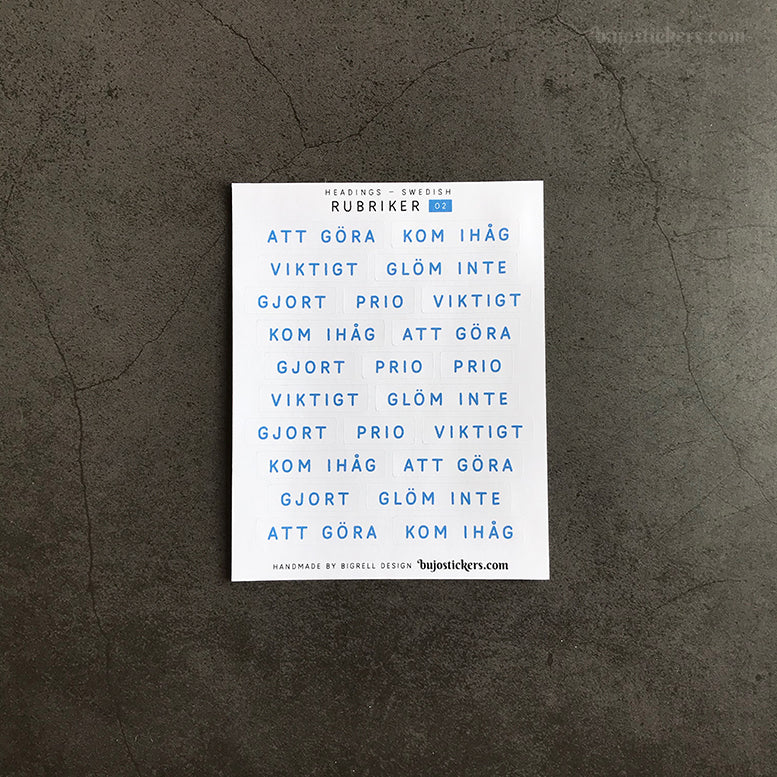 bujostickers.com
HEADINGS – SWEDISH
RUBRIKER 02
ATT GÖRA KOM IHÅG
VIKTIGT GLÖM INTE
GJORT PRIO VIKTIGT
KOM IHÅG ATT GÖRA
GJORT PRIO PRIO
VIKTIGT GLÖM INTE
GJORT PRIO VIKTIGT
KOM IHÅG ATT GÖRA
GJORT GLÖM INTE
ATT GÖRA KOM IHÅG
HANDMADE BY BIGRELL DESIGN bujostickers.com